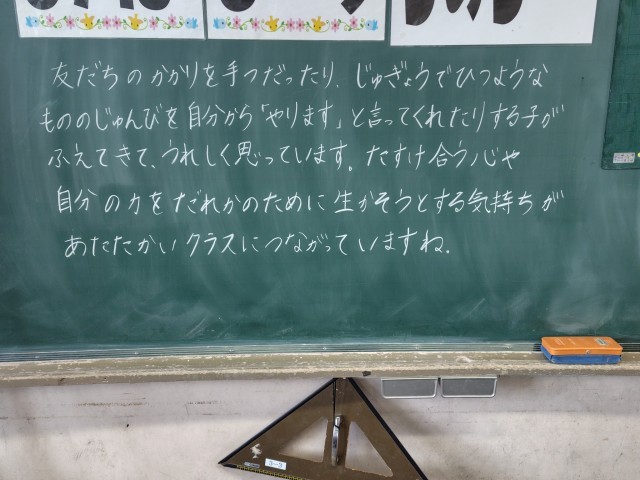 友だちのかかりを手つだったり、じゅぎょうでひつような
もののじゅんびを自分から「やります」と言ってくれたりする子が
ふえてきて、うれしく思っています。たすけ合う心や
自分の力をだれかのために生かそうとする気持ちが
あたたかいクラスにつながっていますね。